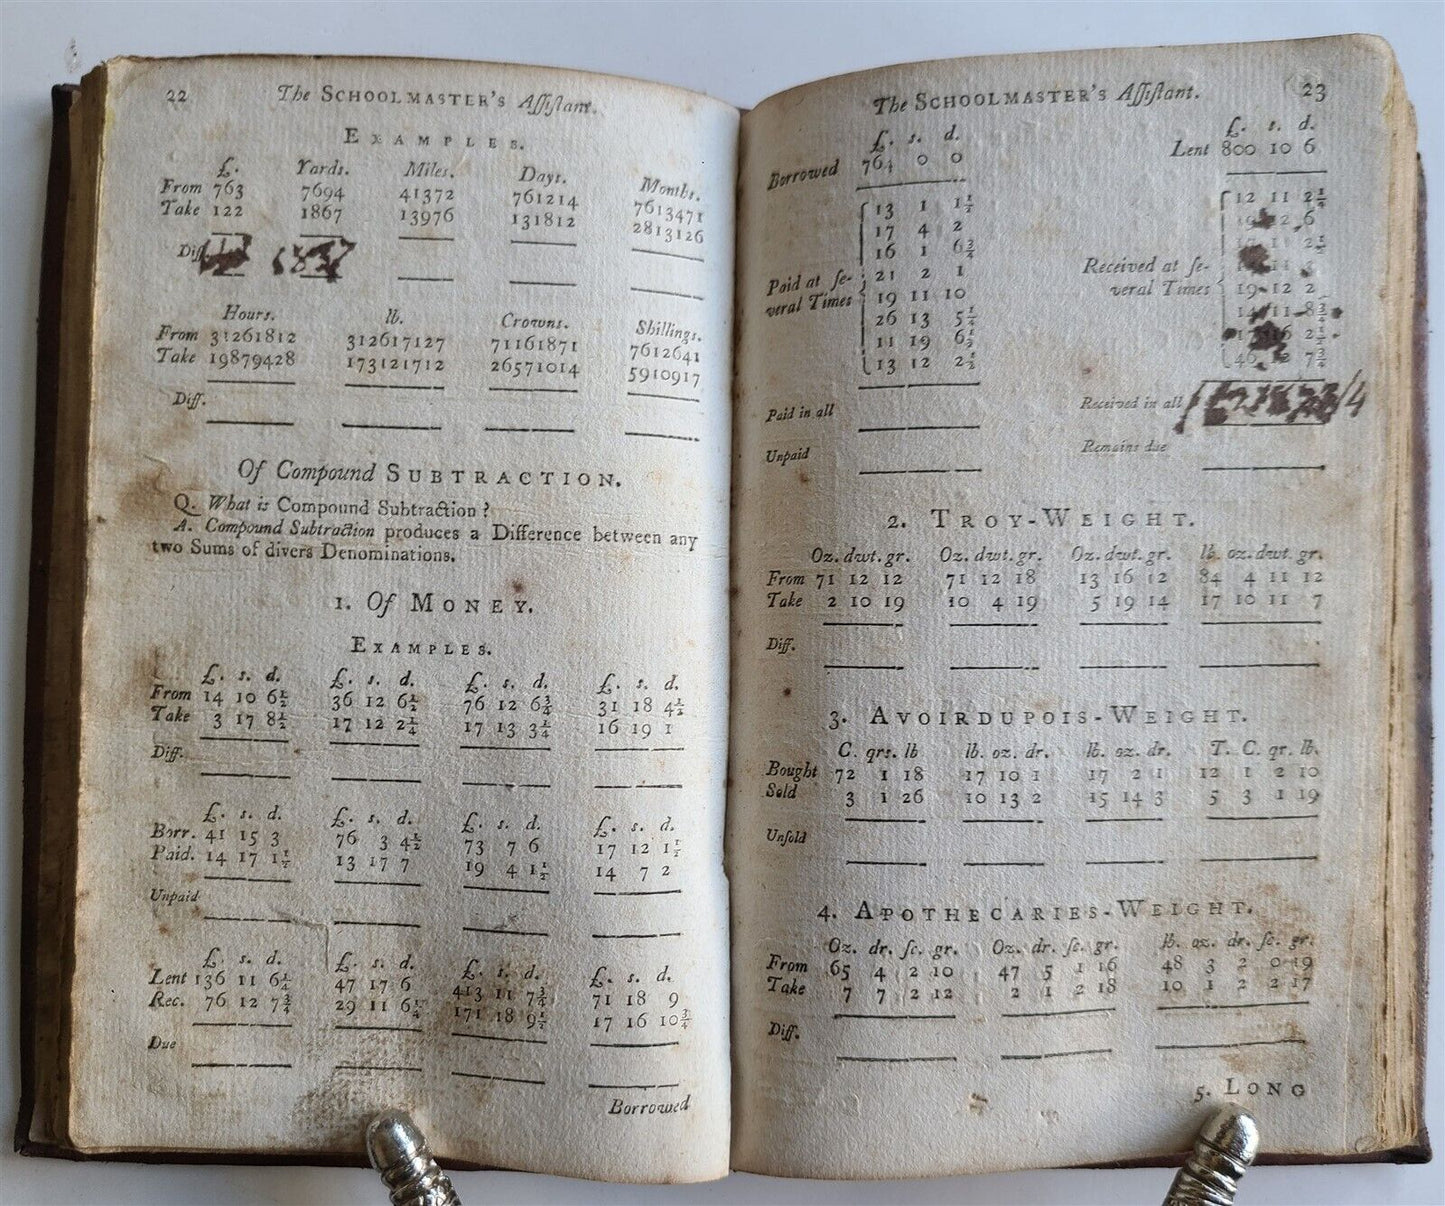 22 The SCHOOLMASTER'S Aſſiſtant.
EXAMPLES.
£. Yards. Miles. Days. Months.
From 763 7694 41372 761214 7613471
Take 122 1867 13976 131812 2813126
Diff.
Hours. lb. Crowns. Shillings.
From 31261812 312617127 71161871 7612641
Take 19879428 173121712 26571014 5910917
Diff.
Of Compound SUBTRACTION.
Q. What is Compound Subtraction?
A. Compound Subtraction produces a Difference between any
two Sums of divers Denominations.
1. Of MONEY.
EXAMPLES.
£. s. d. £. s. d. £. s. d. £. s. d.
From 14 10 6½ 36 12 6½ 76 12 6¾ 31 18 4½
Take 3 17 8½ 17 12 2¼ 17 13 3¼ 16 19 1
Diff.
£. s. d. £. s. d. £. s. d. £. s. d.
Borr. 41 15 3 76 3 4½ 73 7 6 17 12 1½
Paid. 14 17 1½ 13 17 7 19 4 1½ 14 7 2
Unpaid
£. s. d. £. s. d. £. s. d. £. s. d.
Lent 136 11 6¼ 47 17 6 413 11 7¾ 71 18 9
Rec. 76 12 7¾ 29 11 6¼ 171 18 9½ 17 16 10¾
Due
Borrowed
The SCHOOLMASTER'S Aſſiſtant. 23
£. s. d.
Borrowed 764 0 0
13 1 1½
17 4 2
16 1 6¾
Paid at ſe- 21 2 1
veral Times 19 11 10
26 13 5¼
11 19 6½
13 12 2½
Paid in all
Unpaid
£. s. d.
Lent 800 10 6
12 11 2¼
12 6
11 2½
Received at ſe-
veral Times 19 12 2
14 11 8¾
16 2½
46 2 7¾
Received in all
Remains due
2. TROY-WEIGHT.
Oz. dwt. gr. Oz. dwt. gr. Oz. dwt. gr. lb. oz. dwt. gr.
From 71 12 12 71 12 18 13 16 12 84 4 11 12
Take 2 10 19 10 4 19 5 19 14 17 10 11 7
Diff.
3. AVOIRDUPOIS-WEIGHT.
C. qrs. lb lb. oz. dr. lb. oz. dr. T. C. qr. lb.
Bought 72 1 18 17 10 1 17 2 1 12 1 2 10
Sold 3 1 26 10 13 2 15 14 3 5 3 1 19
Unſold
4. APOTHECARIES-WEIGHT.
Oz. dr. ſc. gr. Oz. dr. ſc. gr. lb. oz. dr. ſc. gr.
From 65 4 2 10 47 5 1 16 48 3 2 0 19
Take 7 7 2 12 2 1 2 18 10 1 2 2 17
Diff.
5. LONG